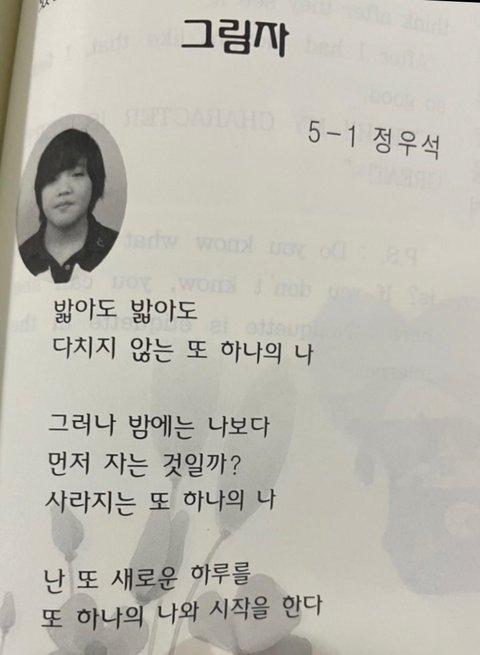 그림자
5-1 정우석
밟아도 밟아도
다치지 않는 또 하나의 나
그러나 밤에는 나보다
먼저 자는 것일까?
사라지는 또 하나의 나
난 또 새로운 하루를
또 하나의 나와 시작을 한다